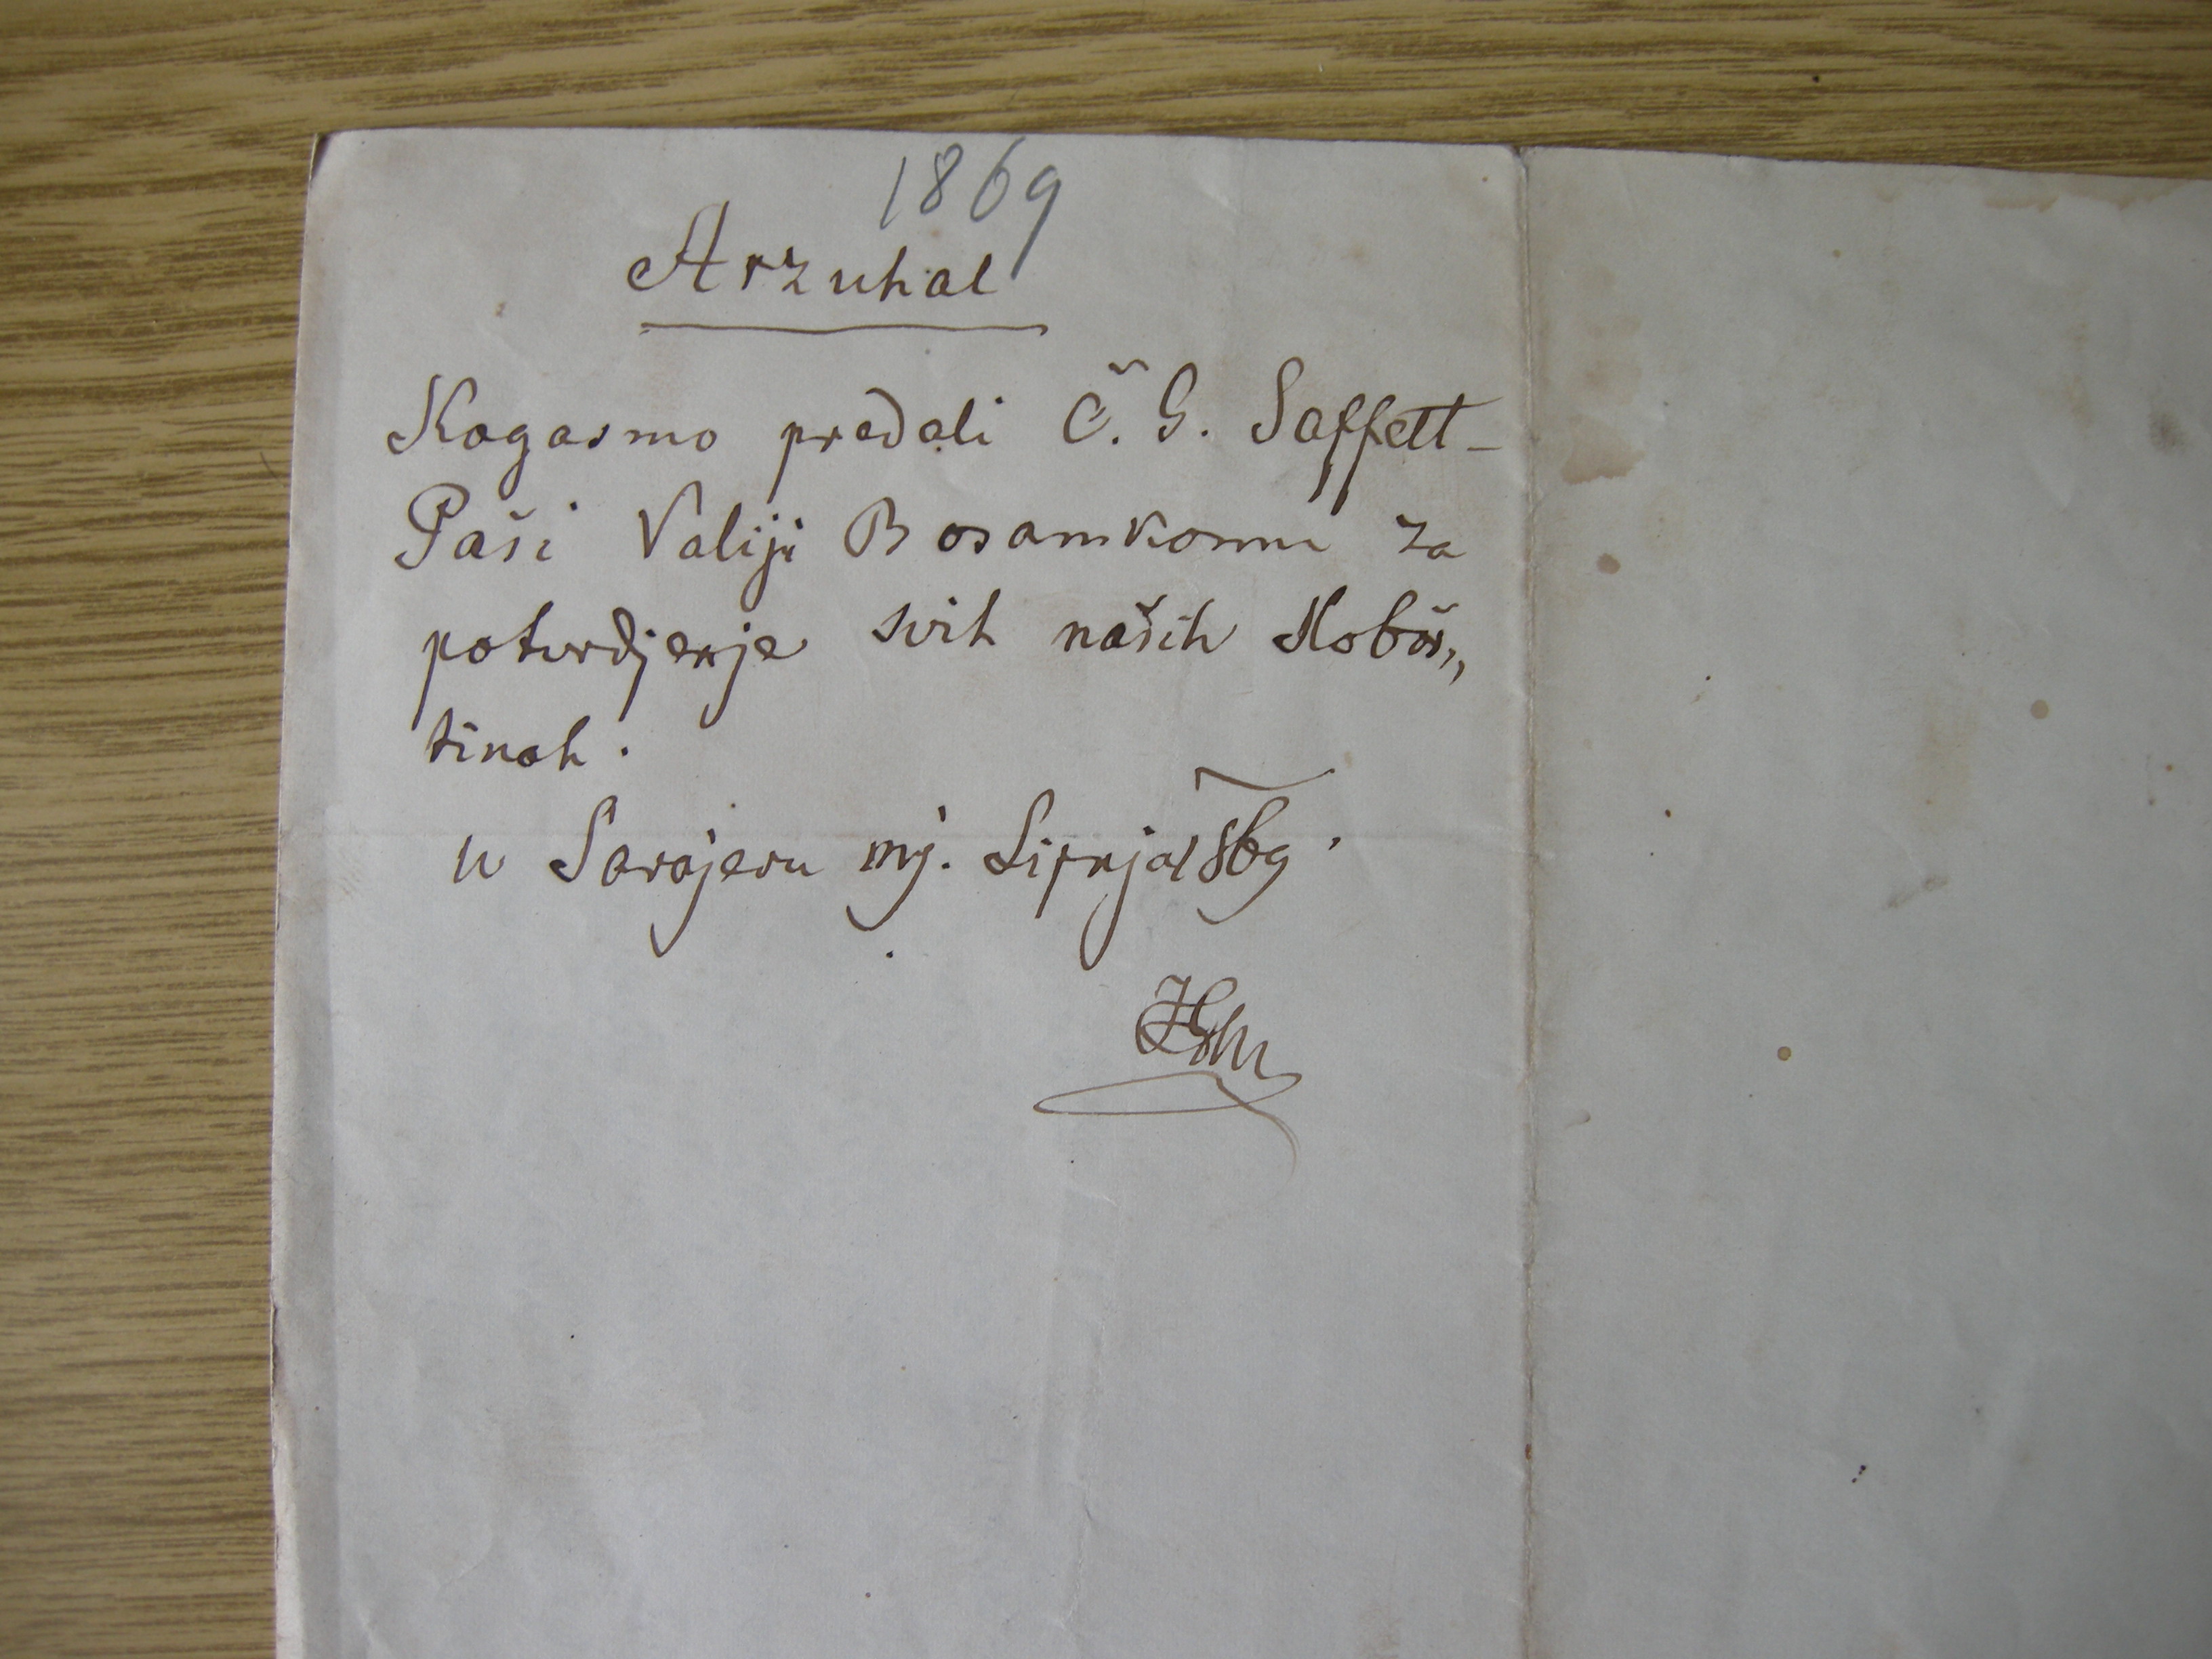 1869
Arzuhal
Kogasmo predali Č. G. Saffett-
Paši Valiji Bosamkomu za
potvrdjenje svih naših Sloboš„
tinah.
u Sarajevu mj. Lipnja 1869.